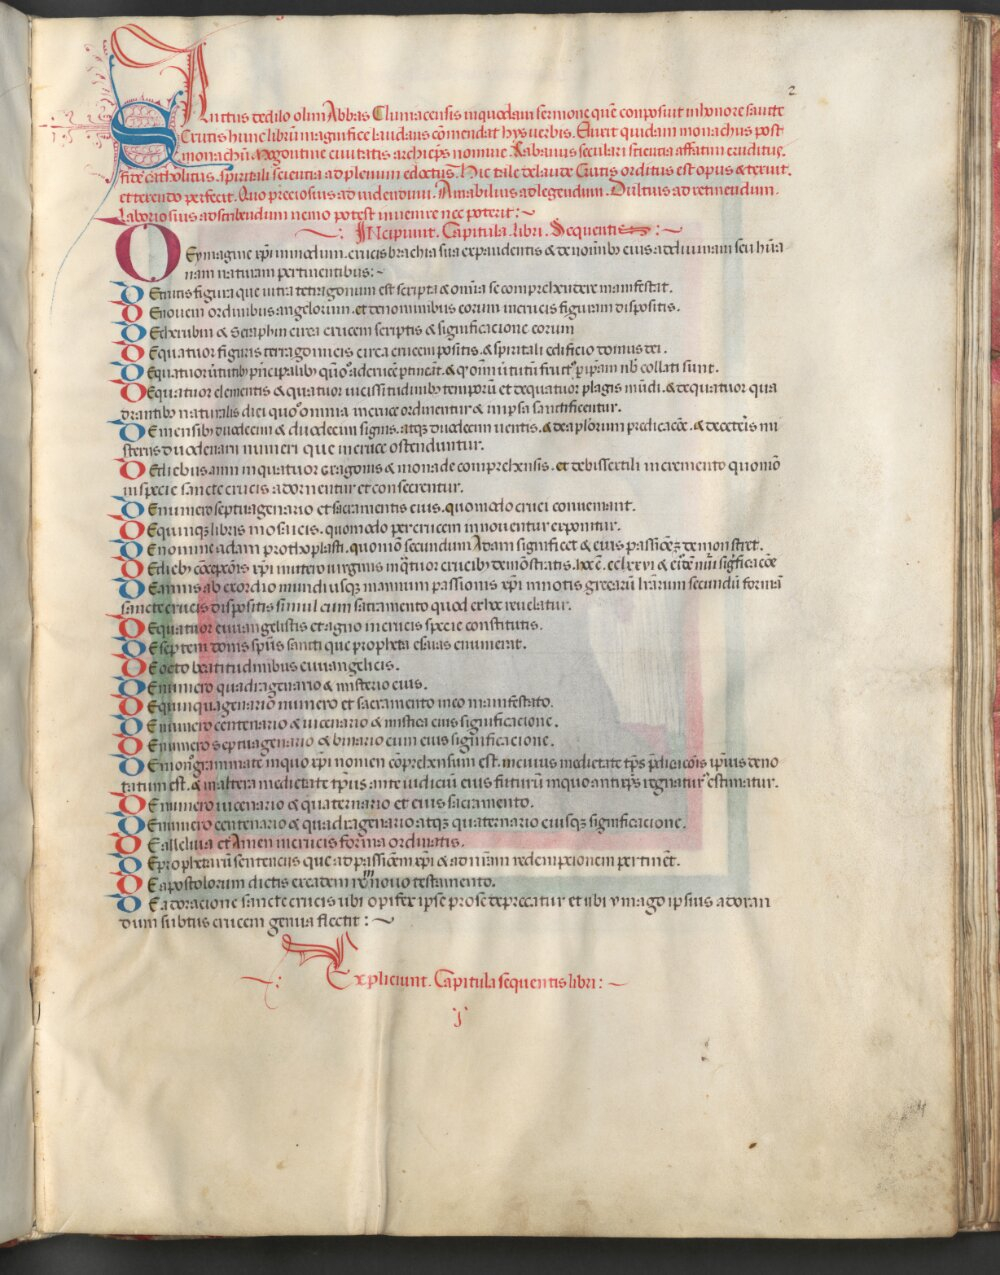 2
SAnctus Oedilo olim Abbas Cluniacensis inquodam sermone quẽ composuit inhonore sancte
Crucis hunc librũ magnifice laudans cõmendat hys uerbis. Fuit quidam monachus post
monachũ Magontine ciuitatis archiep̃s nomine Rabanus seculari scientia affatim eruditus.
fide catholicus. spiritali scientia ad plenum edoctus. Hic tale delaude Crucis orditus est opus & texuit.
et texendo perfecit. Quo preciosius ad uidendum. Amabilius adlegendum. Dultius ad retinendum.
Laboriosius ad scribendum nemo potest inuenire nec poterit :~
~:. INcipiunt. Capitula. libri. Sequentis :~
DEymagine xp̃i inmodum. crucis brachia sua expandentis & denoĩnibꝰ eius addiuinam seu hũa
nam naturam pertinentibus :~
DEcrucis figura que intra tetragonum est scripta & om̃ia se comprehendere manifestat.
DEnouem ordinibus angelorum. et denominibus eorum incrucis figuram dispositis.
DEcherubin & Seraphin circa crucem scriptis & significacione eorum
DEquatuor figuris tetragonicis circa crucem positis. & spiritali edificio domus dei.
DEquatuor uirtutibꝫ principalibꝫ quõ adcrucẽ ptineãt. & qꝫ om̃iũ uirtutũ fruct' p ip̃am nob' collati sunt.
DEquatuor elementis & quatuor uicissitudinibꝫ temporũ et dequatuor plagis mũdi. & dequatuor qua
drantibꝫ naturalis diei quõ omnia incruce ordinentur & inipsa sanctificentur.
DEmensibꝫ duodecim & duodecim signis. atqꝫ duodecim uentis. & deap̃lorum predicacõe. & deceteris mi
sterijs duodenarij numeri que incruce ostenduntur.
DEdiebus anni inquatuor exagonis & monade comprehensis. et debissextili incremento quomõ
inspecie sancte crucis adornentur et consecrentur.
DEnumero septuagenario et sacramentis eius. quomodo cruci conueniant.
DEquinqꝫ libris mosaicis. quomodo per crucem innouentur exponitur.
DEnomine adam prothoplasti. quomõ secundum Adam significet & eius passionẽ demonstret.
DEdiebꝫ cõcepcõis xp̃i inutero uirginis inq̃tuor crucibꝫ demõstratis. hoc ẽ. cclxxvi & eiꝰdẽ nũi sigficacõe
DEannis ab exordio mundi usqꝫ in annum passionis xp̃i innotis grecarũ lr̃arum secundũ formã
sancte crucis dispositis simul cum sacramento quod ex hoc reuelatur.
DEquatuor euuangelistis et agno in crucis specie constitutis.
DEseptem donis sp̃us sancti que propheta esaias enumerat.
DEocto beatitudinibus euuangelicis.
DEnumero quadragenario & misterio eius.
DEquinquagenario numero et sacramento ineo manifestato.
DEnumero centenario & uicenario & mistica eius significacione.
DEnumero septuagenario & binario cum eius significacione.
DEmonogrammate inquo xp̃i nomen cõprehensum est. incuius medietate tp̃s p̃dicacõis ip̃ius deno
tatum est. & inaltera medietate tp̃us ante iudiciũ eius futurũ inquo antixp̃s regnatur' estimatur.
DEnumero uicenario & quaternario et eius sacramento.
DEnumero centenario & quadragenario atqꝫ quaternario eiusqꝫ significacione.
DEalleluia et Amen incrucis forma ordinatis.
DEprophetarũ sentencijs que ad passionem xp̃i & ad nr̃am redempcionem pertinẽt.
DEapostolorum dictis exeadem re innouo testamento.
DEadoracione sancte crucis ubi opifex ipse prose deprecatur et ubi ymago ipsius adoran
dum subtus crucem genua flectit :~
Expliciunt. Capitula sequentis libri :~